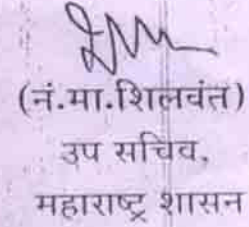 (नं.मा.शिलवंत)
उप सचिव,
महाराष्ट्र शासन